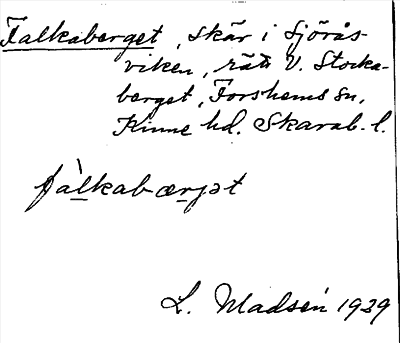 Falkaberget, skär i Sjörås-
viken, rätt V. Stocka-
berget, Forshems sn,
Kinne hd. Skarab. l.
fàlkabærjət
L. Madsén 1939